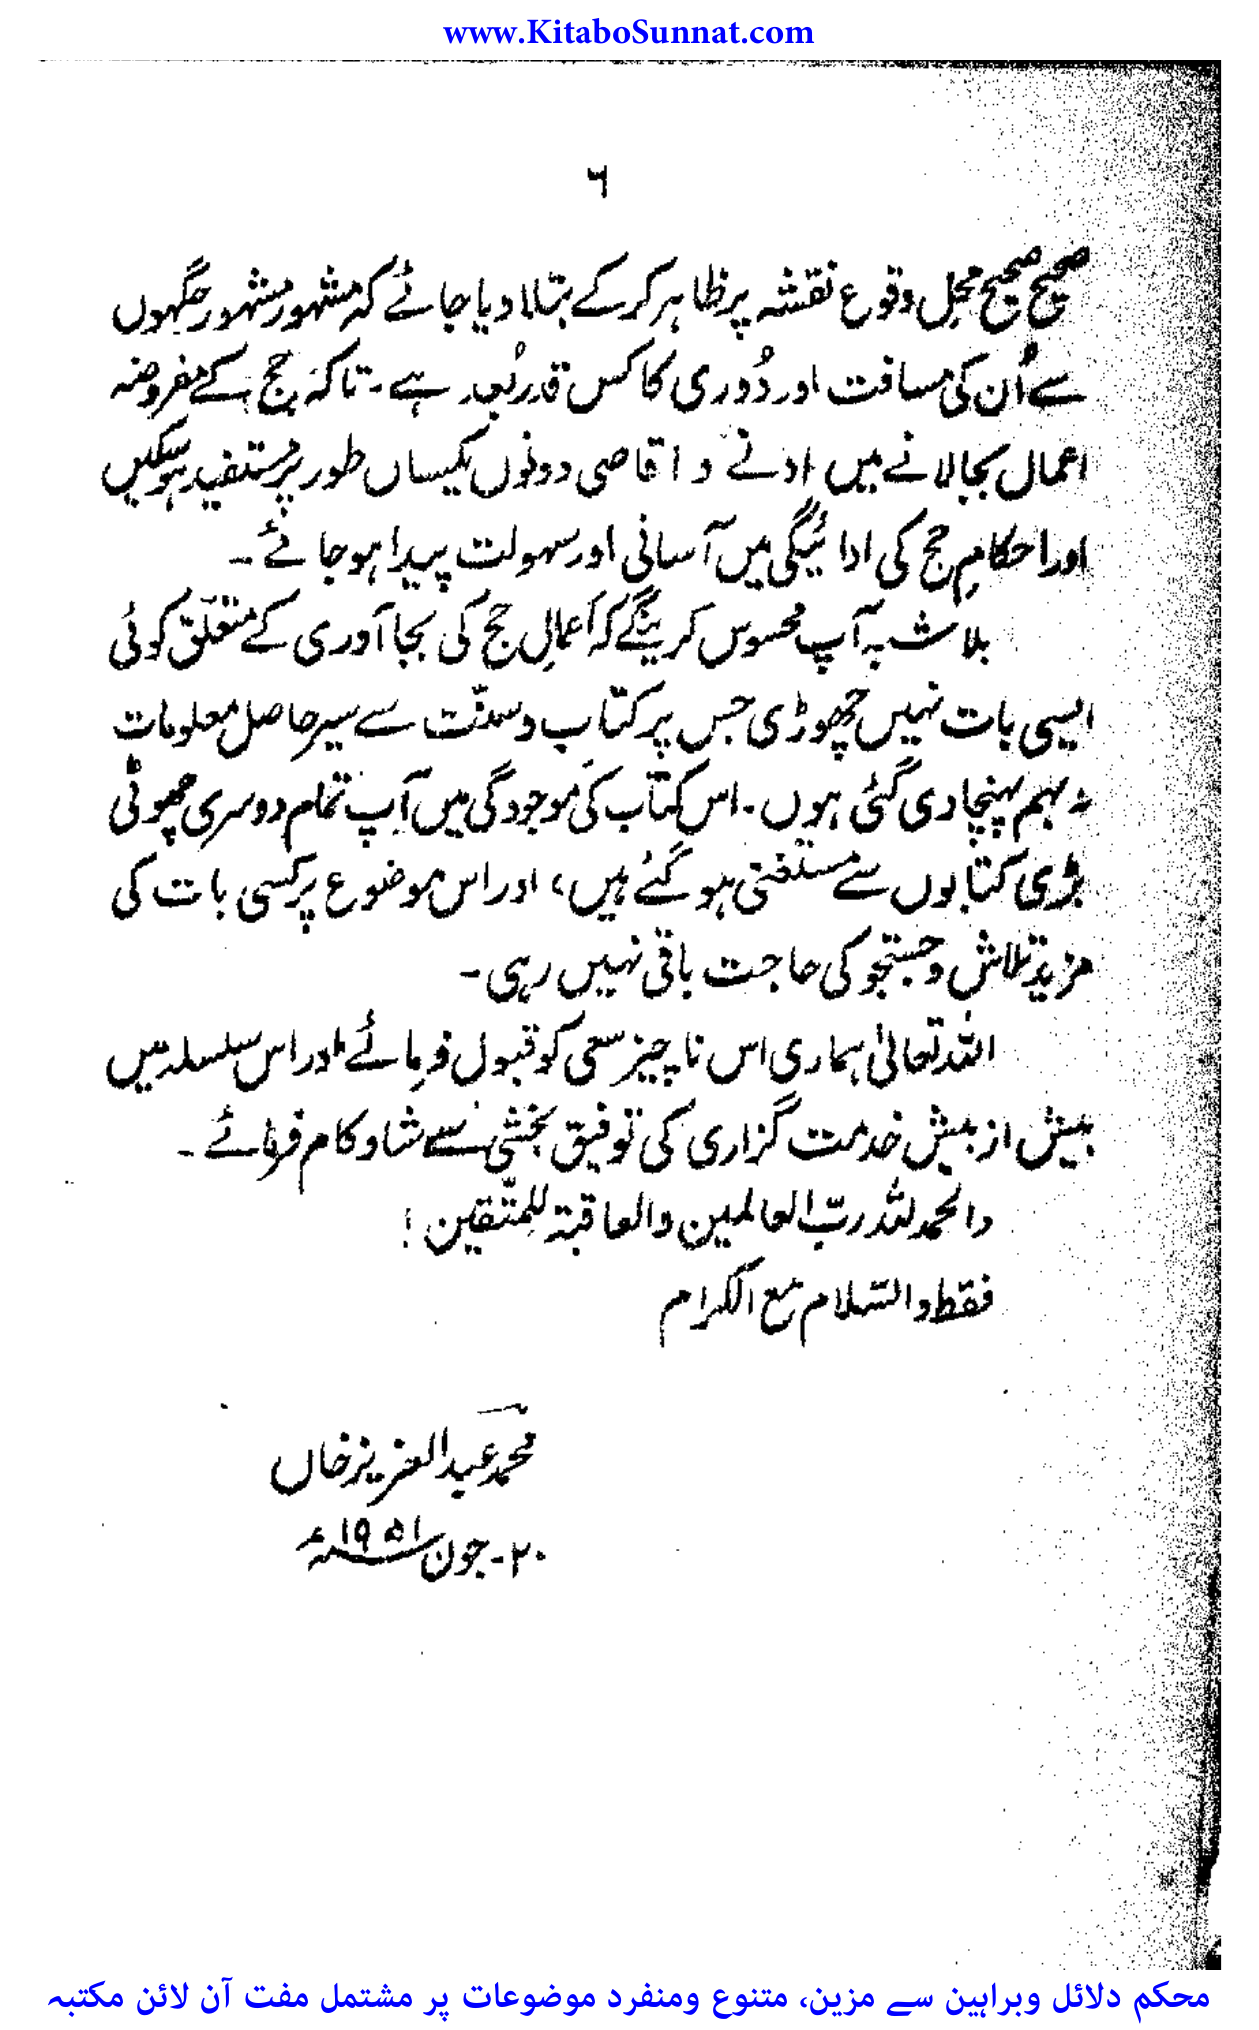 www.KitaboSunnat.com
۶
صحیح صحیح محلِ وقوع نقشہ پر ظاہر کر کے بتلا دیا جائے کہ مشہور مشہور جگہوں
سے اُن کی مسافت اور دُوری کا کس قدر بُعد ہے۔ تاکہ حج کے مفروضہ
اعمال بجا لانے میں ادنےٰ و اقاصی دونوں یکساں طور پر مستفید ہو سکیں
اور احکامِ حج کی ادائیگی میں آسانی اور سہولت پیدا ہو جائے۔
بلا شبہ آپ محسوس کرینگے کہ اَعمالِ حج کی بجا آوری کے متعلّق کوئی
ایسی بات نہیں چھوڑی جس پر کتاب و سنّت سے سیر حاصل معلومات
نہ بہم پہنچا دی گئی ہوں۔ اس کتاب کی موجودگی میں آپ تمام دوسری چھوٹی
بڑی کتابوں سے مستغنی ہو گئے ہیں، اور اس موضوع پر کسی بات کی
مزید تلاش و جستجو کی حاجت باقی نہیں رہی۔
اللہ تعالیٰ ہماری اس ناچیز سعی کو قبول فرمائے اور اس سلسلہ میں
بیش از بیش خدمت گزاری کی توفیق بخشی سے شاد کام فرمائے۔
والحمد للہ ربّ العالمین والعاقبۃ للمتّقین!
فقط والسّلام مع الکرام
محمد عبد العزیز خاں
۲۰۔ جون ۱۹۵۱ء
محکم دلائل وبراہین سے مزین، متنوع ومنفرد موضوعات پر مشتمل مفت آن لائن مکتبہ